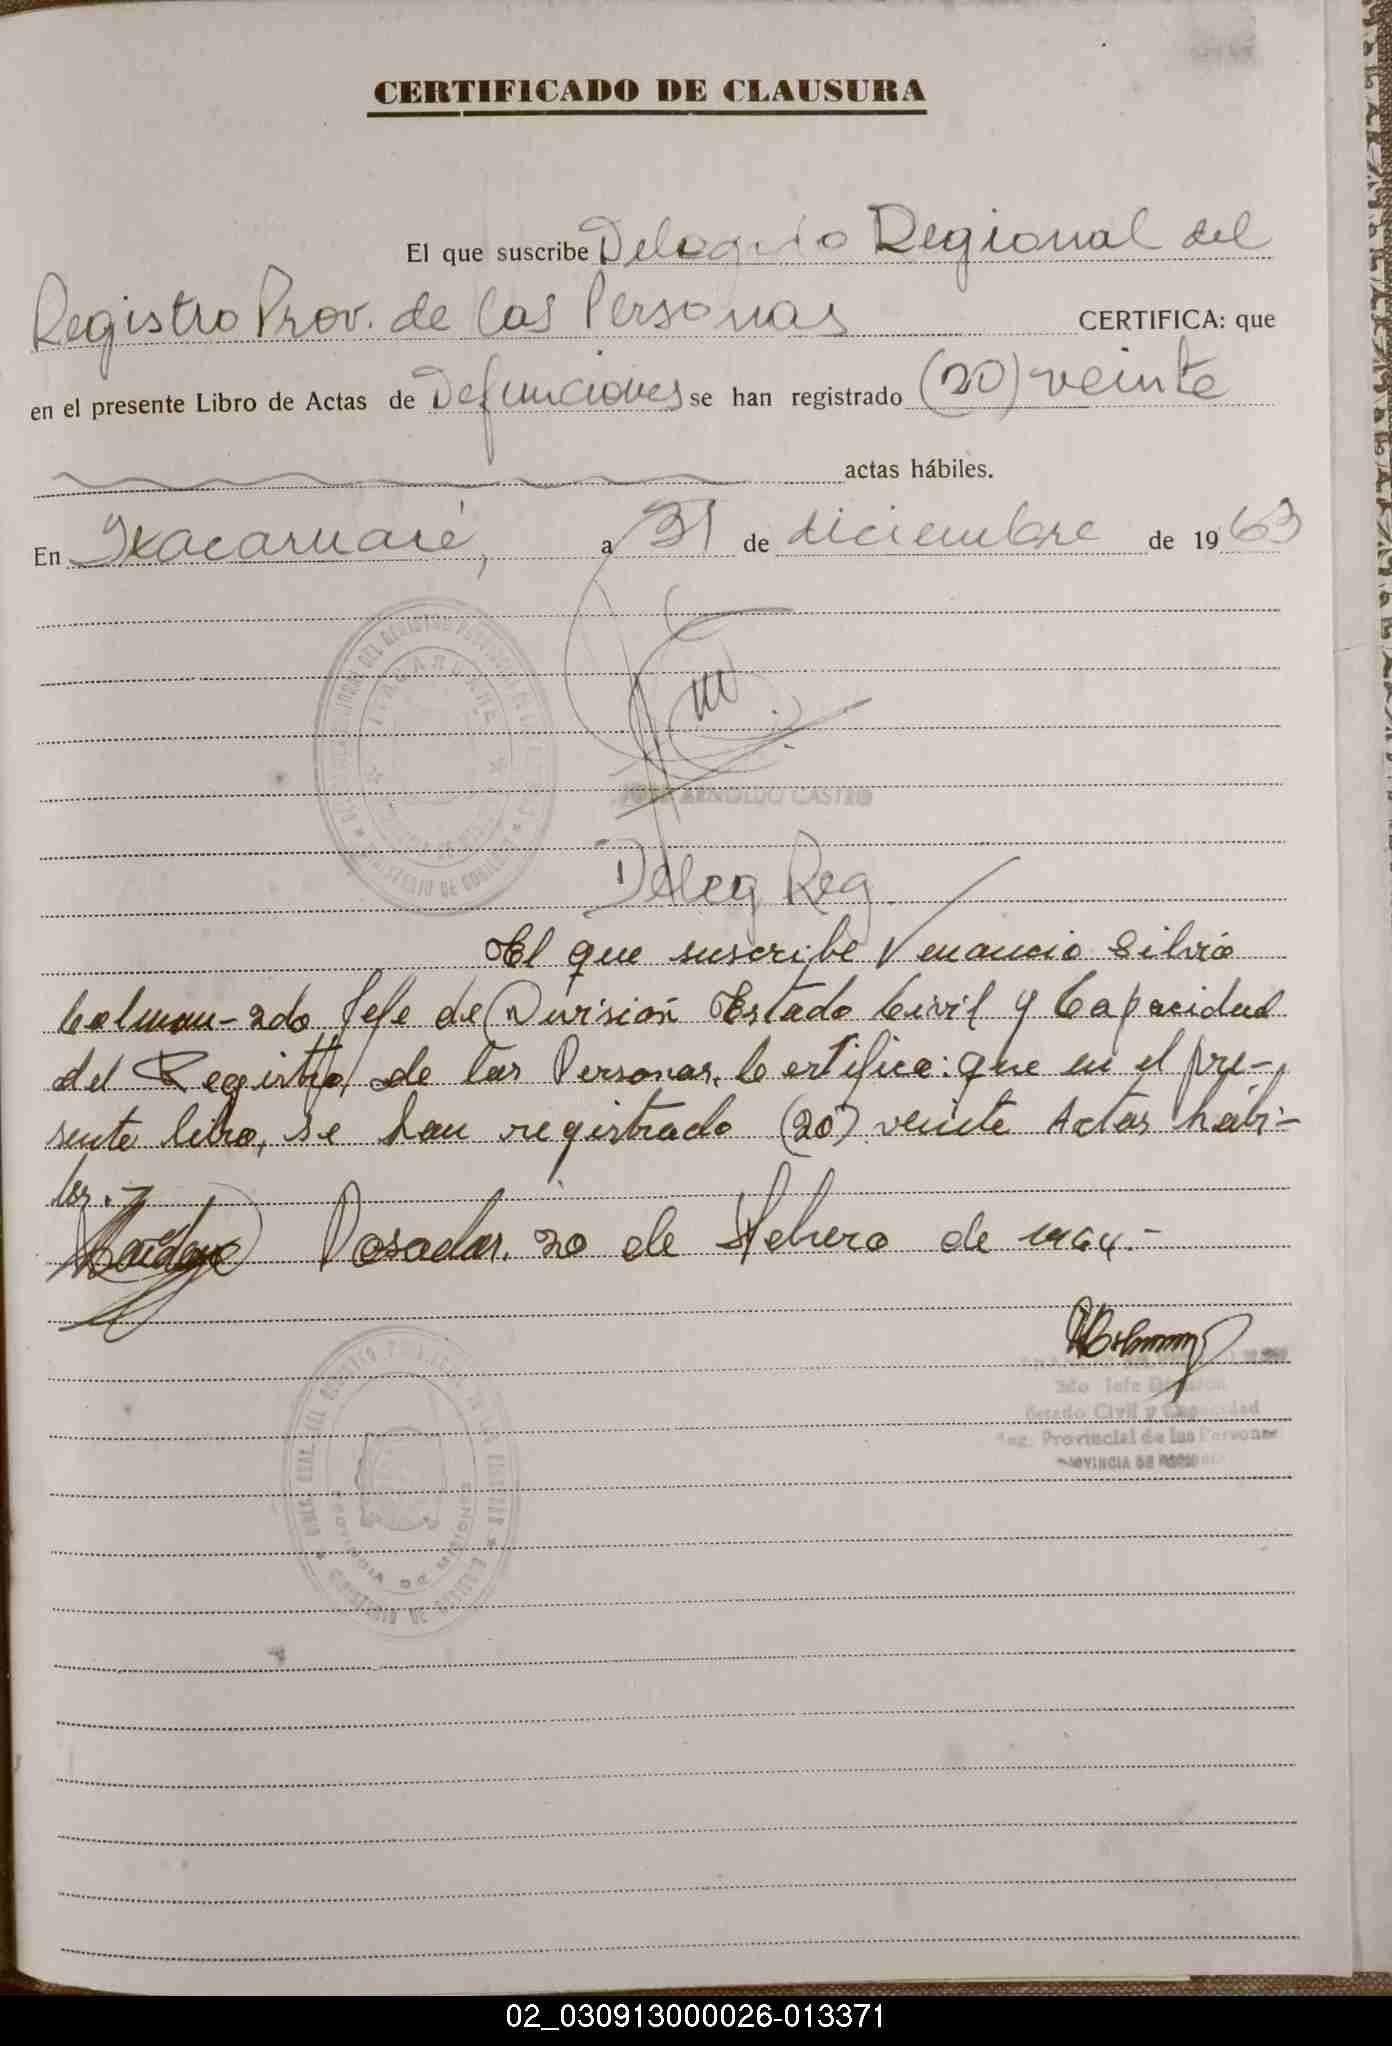 CERTIFICADO DE CLAUSURA
El que suscribe Delegado Regional del
Registro Prov. de las Personas CERTIFICA: que
en el presente Libro de Actas de Defunciones se han registrado (20) veinte
actas hábiles.
En Itacaruaré, a 31 de diciembre de 1963
ITACARUARE
MINISTERIO DE GOBIERNO
JOSE ARNOLDO CASTRO
Deleg Reg.
El que suscribe Venancio Silvio
Colman - 2do Jefe de División Estado Civil y Capacidad
del Registro de las Personas, Certifica: que en el pre-
sente libro, se han registrado (20) veinte Actas hábi-
les.-
Posadas, 20 de Febrero de 1964.-
2do Jefe División
Estado Civil y Capacidad
Reg. Provincial de las Personas
PROVINCIA DE MISIONES
PROVINCIA DE MISIONES
MINISTERIO DE GOBIERNO
02_030913000026-013371